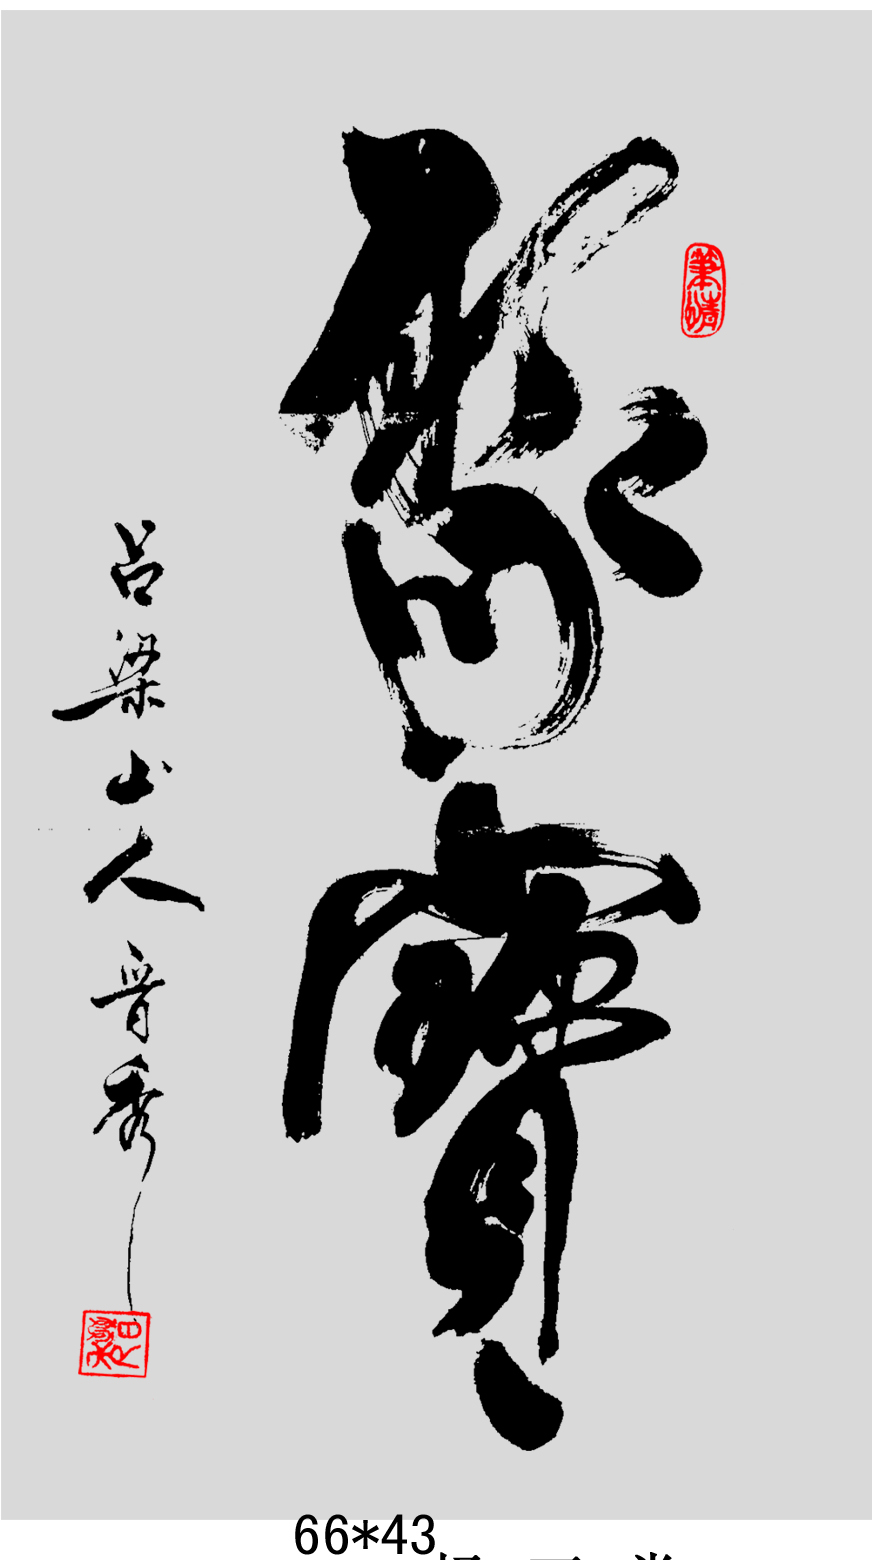 聚寶
筆情
吕梁山人晋秀
66*43